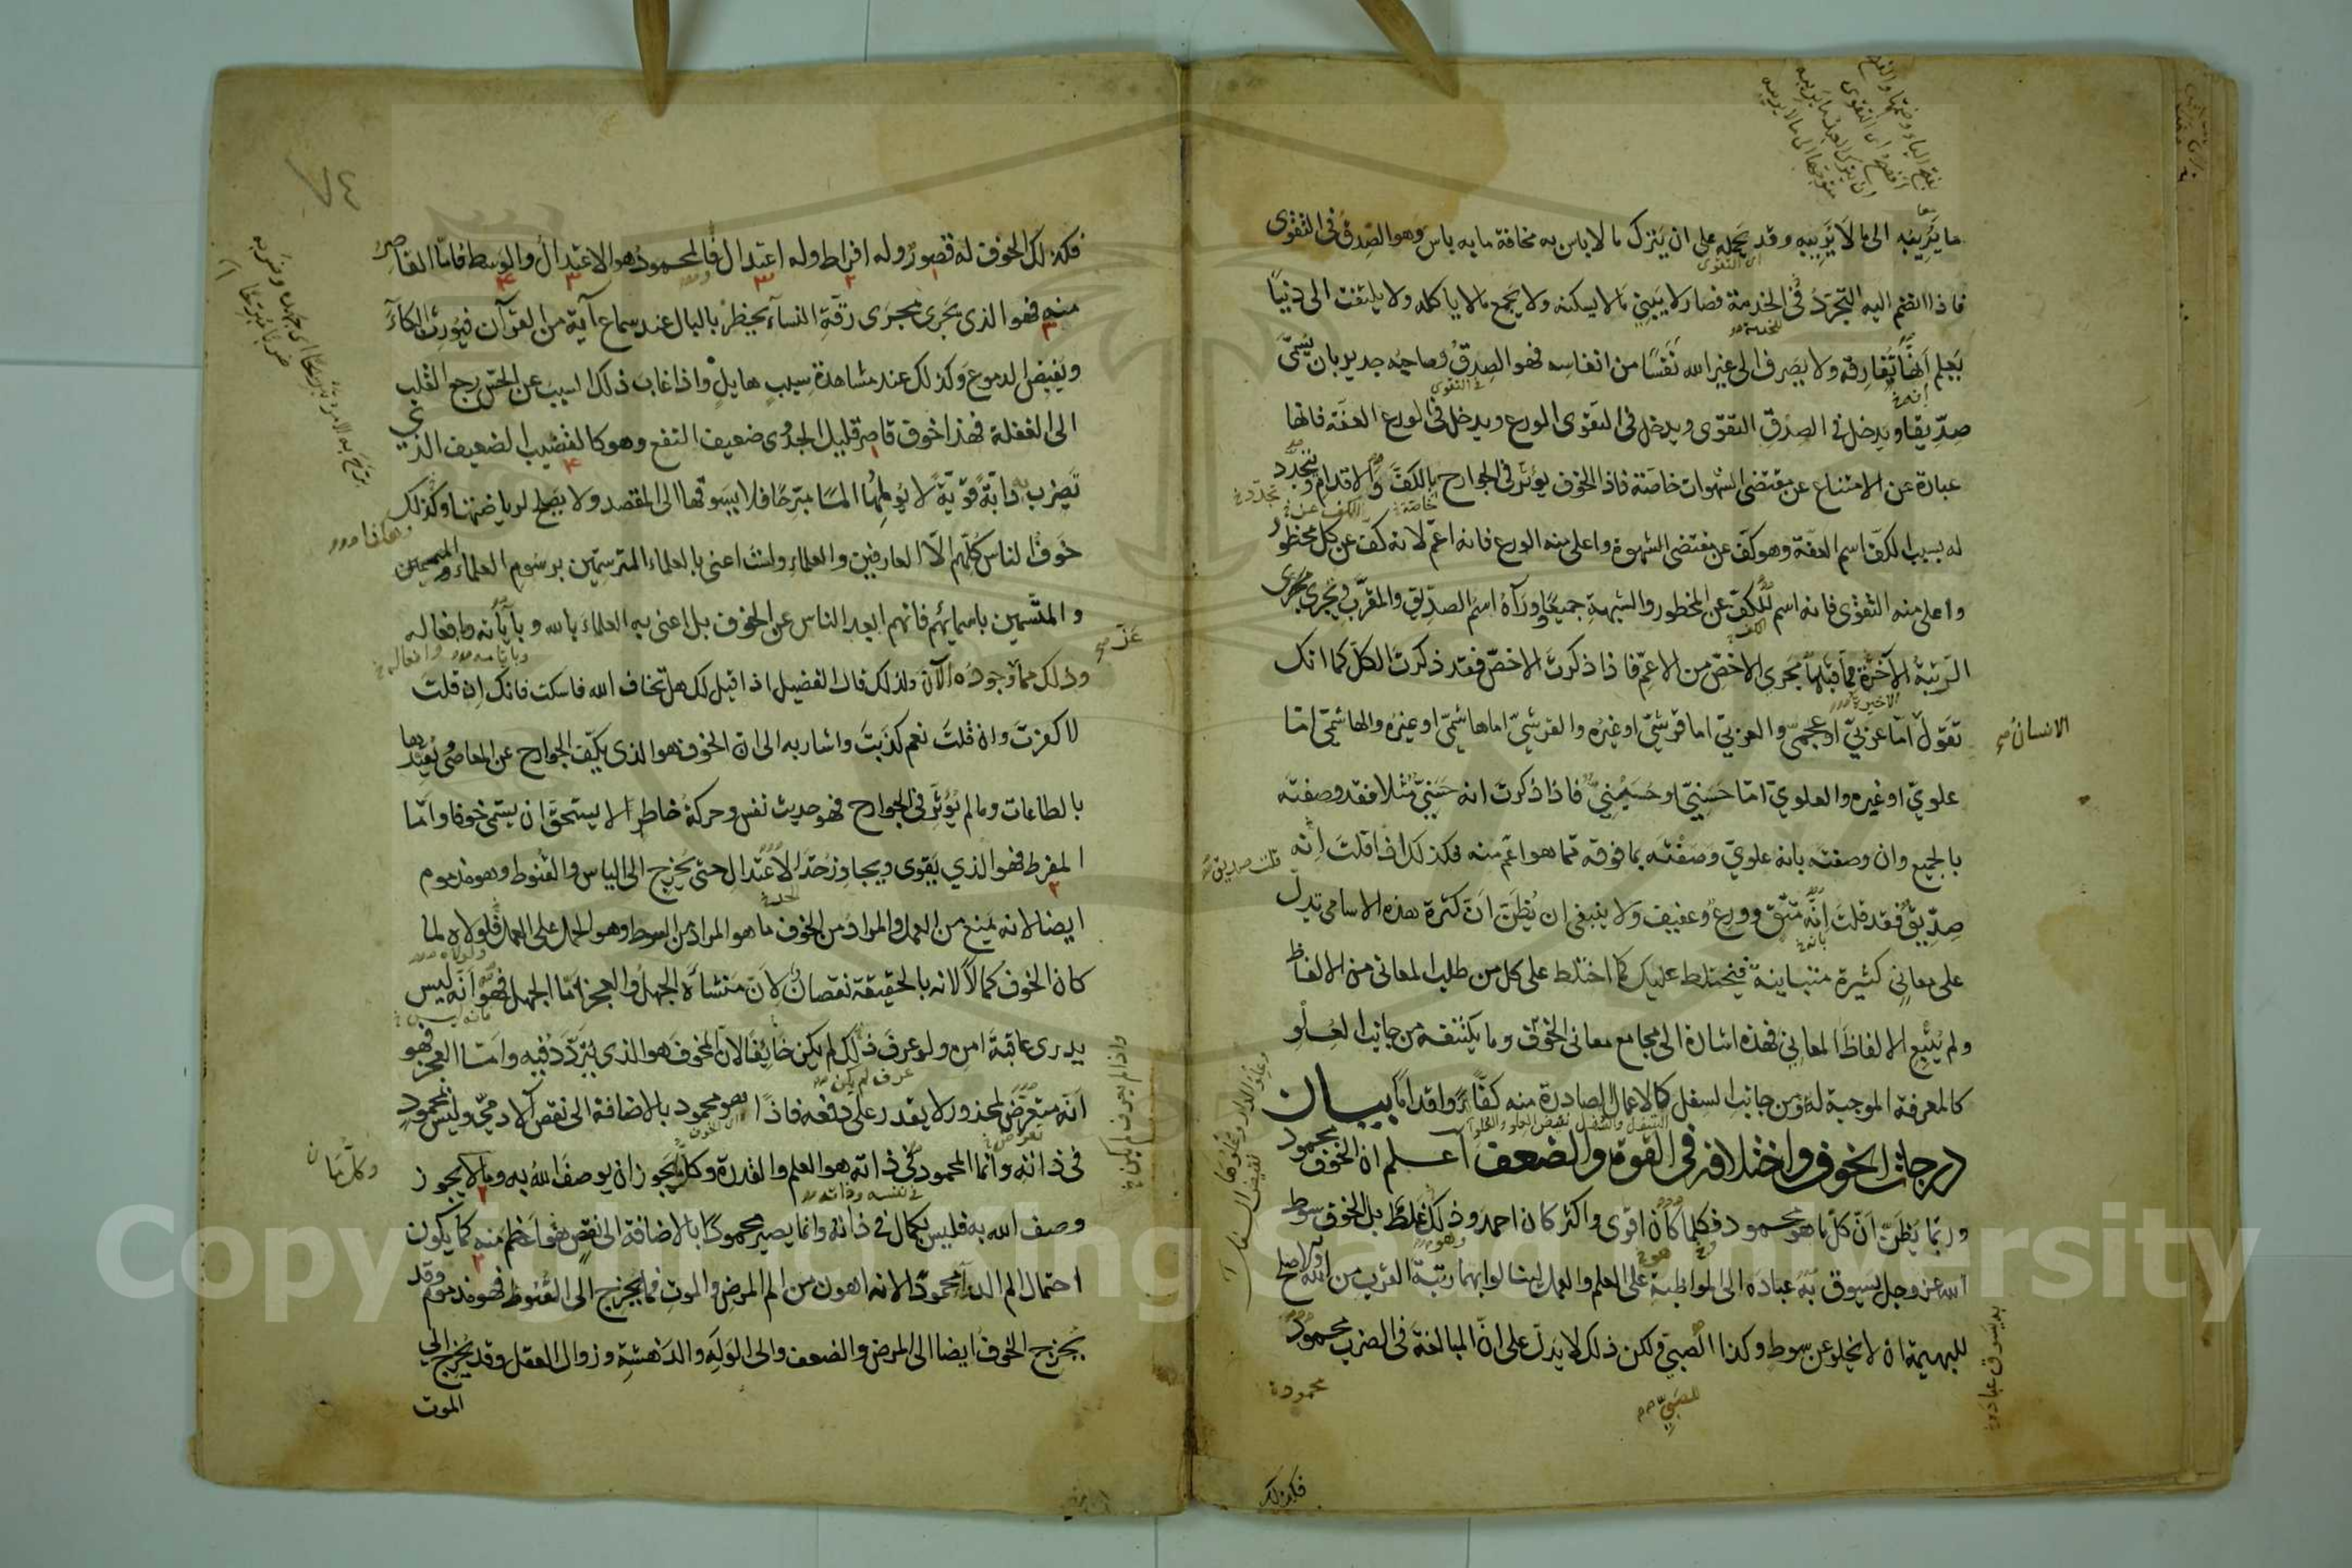 ما يَرِيبُه الى ما لا يَرِيبُه وقد يحمله على ان يترك ما لا باس به مخافة ما به باس وهو الصدق فى التقوى
فاذا انضم اليه التجرد فى الخدمة فصار لا يبنى ما لا يسكنه ولا يجمع ما لا ياكله ولا يلتفت الى دنيا
يعلم انها تفارقه ولا يصرف الى غير الله نفسا من انفاسه فهو الصدق وصاحبه جدير بان يسمى
صديقا ويدخل فى الصدق التقوى ويدخل فى التقوى الورع ويدخل فى الورع العفة فانها
عبارة عن الامتناع عن مقتضى الشهوات خاصة فاذا الخوف يؤثر فى الجوارح بالكف والاقدام ويتجدد
له بسبب الكف اسم العفة وهو كف عن مقتضى الشهوة واعلى منه الورع فانه اعم لانه كف عن كل محظور
واعلى منه التقوى فانه اسم للكف عن المحظور والشبهة جميعا ووراءه اسم الصديق والمقرب وتجرى مجرى
الرتبة الآخرة مما قبلها مجرى الاخص من الاعم فاذا ذكرت الاخص فقد ذكرت الكل كما انك
تقول اما عربى او عجمى والعربى اما قرشى او غيره والقرشى اما هاشمى او غيره والهاشمى اما
الانسان صح
علوى او غيره والعلوى اما حسنى او حسينى فاذا ذكرت انه حسنى مثلا فقد وصفته
بالجميع وان وصفته بانه علوى وصفته بما فوقه مما هو اعم منه فكذلك اذا قلت انه
صديق فقد قلت انه متق وورع وعفيف ولا ينبغى ان يظن ان كثرة هذه الاسامى تدل
على معانى كثيرة متباينة فيختلط عليك كما اختلط على كل من طلب المعانى من الالفاظ
ولم يتبع الالفاظ المعانى فهذه اشارة الى مجامع معانى الخوف وما يكتنفه من جانب العلو
كالمعرفة الموجبة له ومن جانب السفل كالاعمال الصادرة منه كفا واقداما بيان
درجات الخوف واختلافه فى القوة والضعف اعلم ان الخوف محمود
وربما يظن ان كل ما هو محمود فكلما كان اقوى واكثر كان احمد وذلك غلط بل الخوف سوط
الله عز وجل يسوق به عباده الى المواظبة على العلم والعمل لينالوا بهما رتبة القرب من الله والاصلح
للبهيمة ان لا تخلو عن سوط وكذا الصبى ولكن ذلك لا يدل على ان المبالغة فى الضرب محمود
محمودة
للصبى
فكذلك
٧٤
فكذلك الخوف له قصور وله افراط وله اعتدال فالمحمود هو الاعتدال والوسط فاما القاصر
منه فهو الذى يجرى مجرى رقة النساء يخطر بالبال عند سماع آية من القرآن فيورث البكاء
ويفيض الدموع وكذلك عند مشاهدة سبب هايل واذا غاب ذلك السبب عن الحس رجع القلب
الى الغفلة فهذا خوف قاصر قليل الجدوى ضعيف النفع وهو كالقضيب الضعيف الذى
تضرب به دابة قوية لا يؤلمها الما مبرحا فلا يسوقها الى المقصد ولا يصلح لرياضتها وكذلك
خوف الناس كلهم الا العارفين والعلماء ولست اعنى بالعلماء المترسمين برسوم العلماء
والمتسمين باسمائهم فانهم ابعد الناس عن الخوف بل اعنى به العلماء بالله وبآياته وافعاله
وذلك مما وجوده الآن ولذلك قال الفضيل اذا قيل لك هل تخاف الله فاسكت فانك ان قلت
لا كفرت وان قلت نعم كذبت واشار به الى ان الخوف هو الذى يكف الجوارح عن المعاصى ويقيدها
بالطاعات وما لم يؤثر فى الجوارح فهو حديث نفس وحركة خاطر لا يستحق ان يسمى خوفا واما
المفرط فهو الذي يقوى ويجاوز حد الاعتدال حتى يخرج الى الياس والقنوط وهو مذموم
ايضا لانه يمنع من العمل والمراد من الخوف ما هو المراد من السوط وهو الحمل على العمل فلولاه لما
كان الخوف كمالا لانه بالحقيقة نقصان لان منشأه الجهل والعجز اما الجهل فهو انه ليس
يدرى عاقبة امره ولو عرف ذلك لم يكن خائفا لان المخوف هو الذى يتردد فيه واما العجز فهو
انه متعرض لمحذور لا يقدر على دفعه فاذا هو محمود بالاضافة الى نقص الآدمى وليس بمحمود
فى ذاته وانما المحمود فى ذاته هو العلم والقدرة وكل ما يجوز ان يوصف الله به وما لا يجوز
وصف الله به فليس بكمال فى ذاته وانما يصير محمودا بالاضافة الى نقص هو اعظم منه كما يكون
احتمال الم الدواء محمودا لانه اهون من الم المرض والموت فما يخرج الى القنوط فهو مذموم وقد
يخرج الخوف ايضا الى المرض والضعف والى الوله والدهشة وزوال العقل وقد يخرج الى
الموت
Copyright © King Saud University